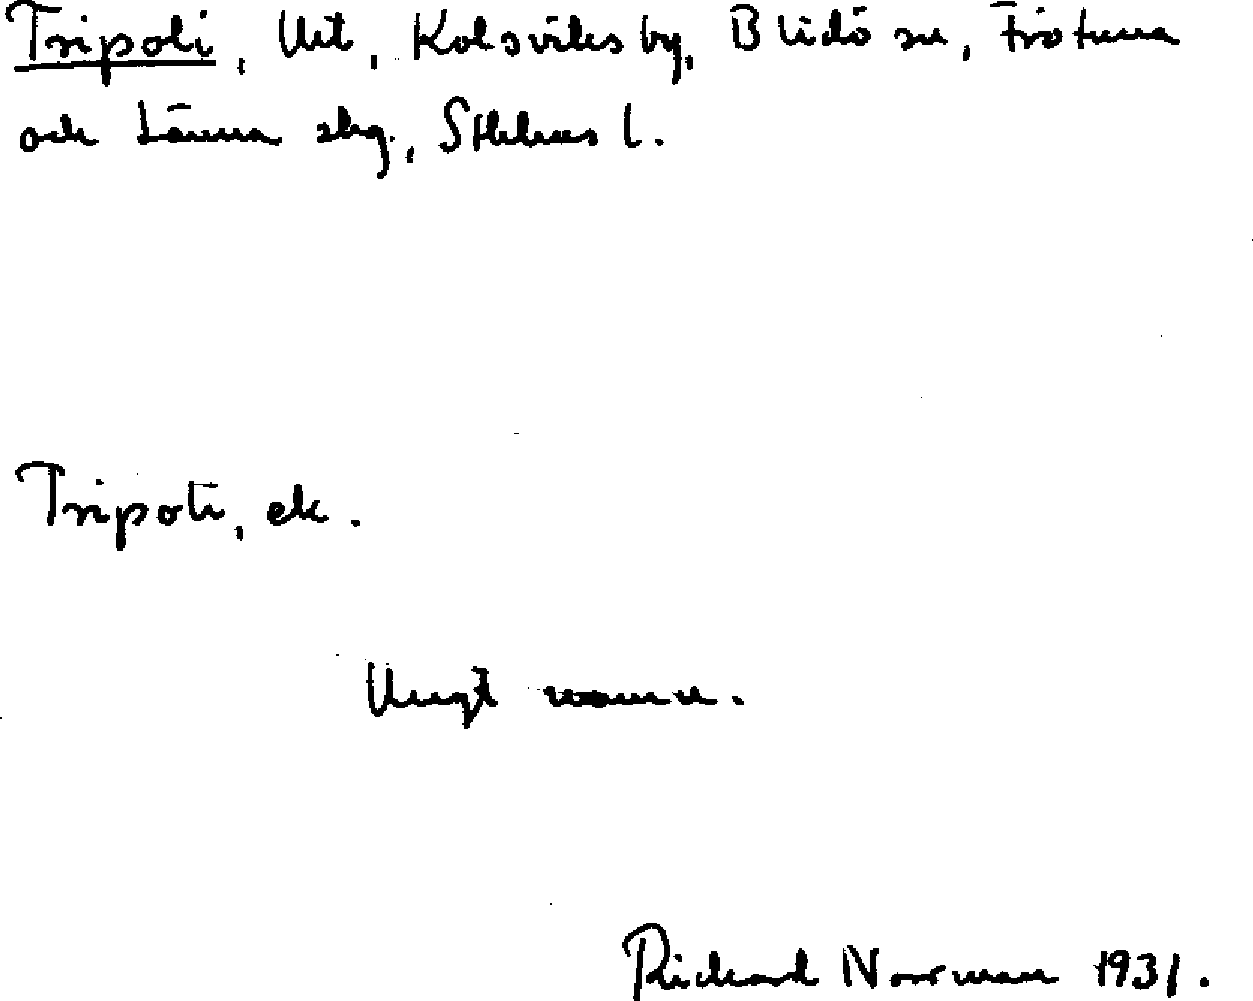 Tripoli, Utt, Kolsviks by, Blidö sn, Frötuna
och Länna skg., Sthlms l.
Tripoli, ek.
Ungt namn.
Rickard Norrman 1931.